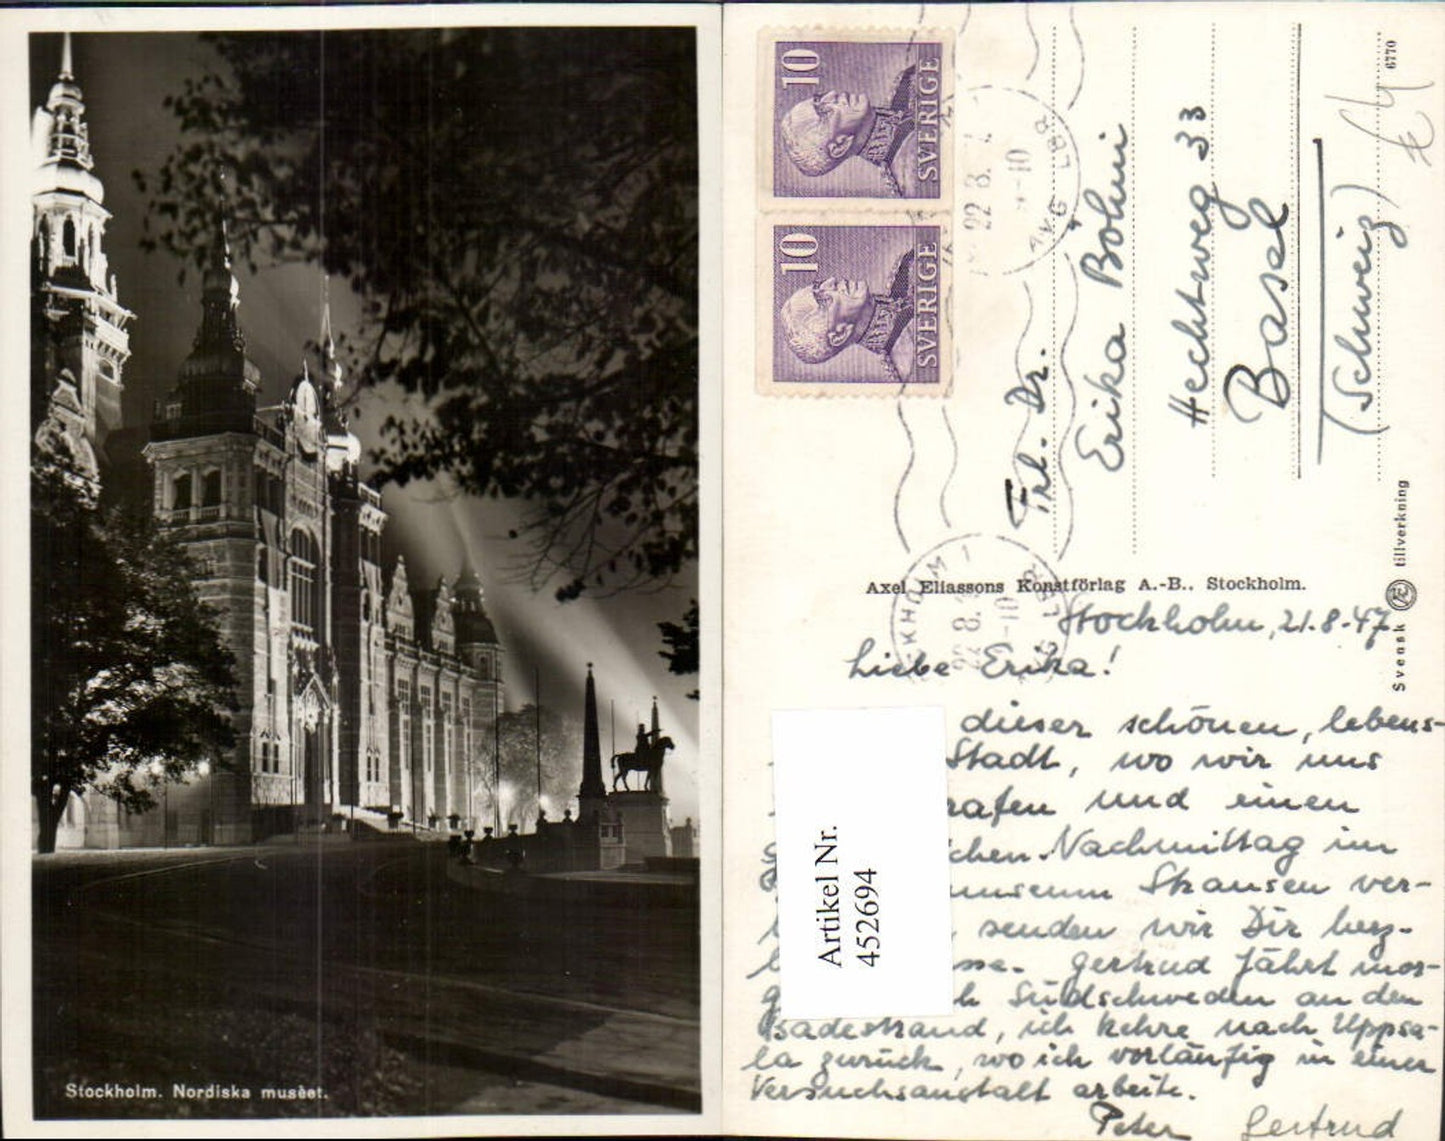 Stockholm. Nordiska muséet.
10
SVERIGE
10
SVERIGE
22 8
Frl. Dr.
Erika Böhni
Hechtweg 33
Basel
(Schweiz)
6770
Axel Eliassons Konstförlag A.-B., Stockholm.
Svensk tillverkning
Stockholm, 21.8.47
Liebe Erika!
dieser schönen, lebens-
Stadt, wo wir uns
und einen
Nachmittag im
Skansen ver-
senden wir Dir herz-
Gertrud fährt mor-
Südschweden an den
Badestrand, ich kehre nach Uppsa-
la zurück, wo ich vorläufig in einer
Versuchsanstalt arbeite.
Peter Gertrud
Artikel Nr.
452694